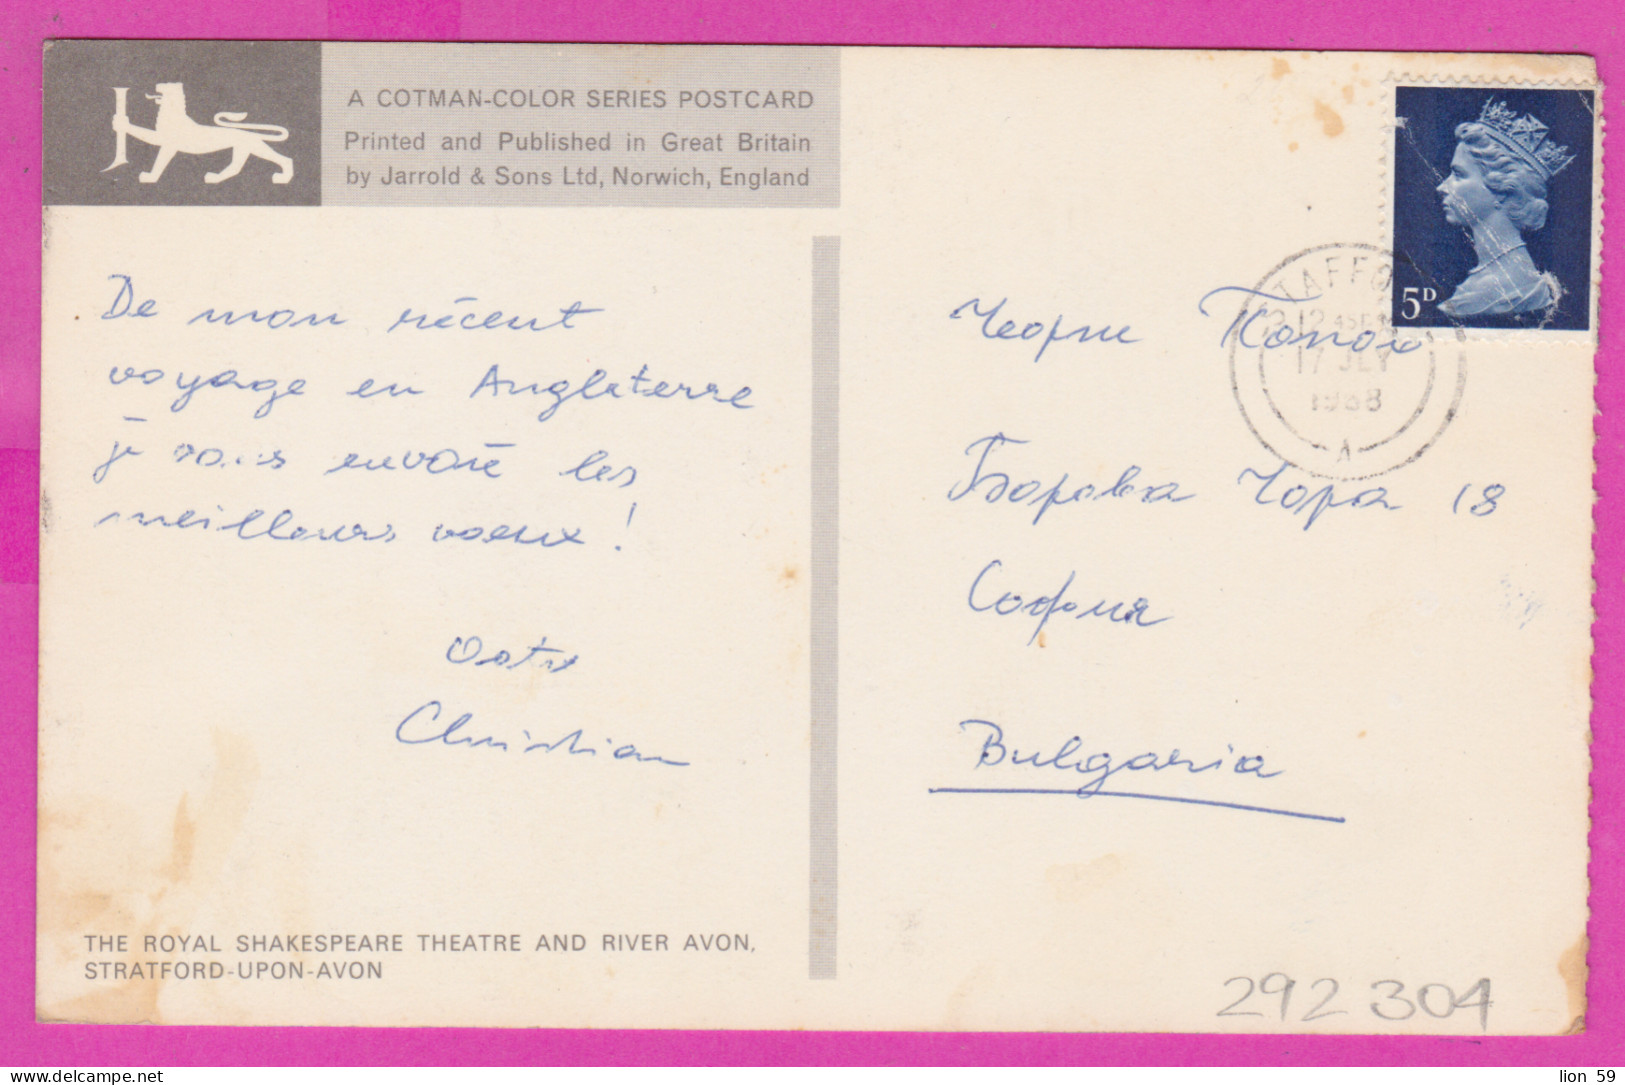 A COTMAN-COLOR SERIES POSTCARD
Printed and Published in Great Britain
by Jarrold & Sons Ltd, Norwich, England
De mon récent
voyage en Angleterre
je vous envoie les
meilleurs voeux !
Christian
THE ROYAL SHAKESPEARE THEATRE AND RIVER AVON,
STRATFORD-UPON-AVON
5D
TAFFO
17 JLY
1968
A
Борова Гора 18
София
Bulgaria
292 304
lion 59